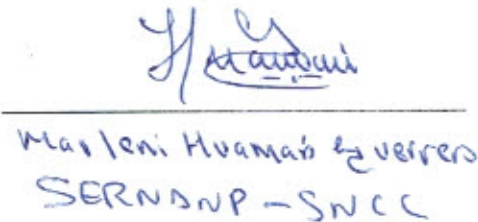 Marleni Huamań Guerrero
SERNANP - SNCC